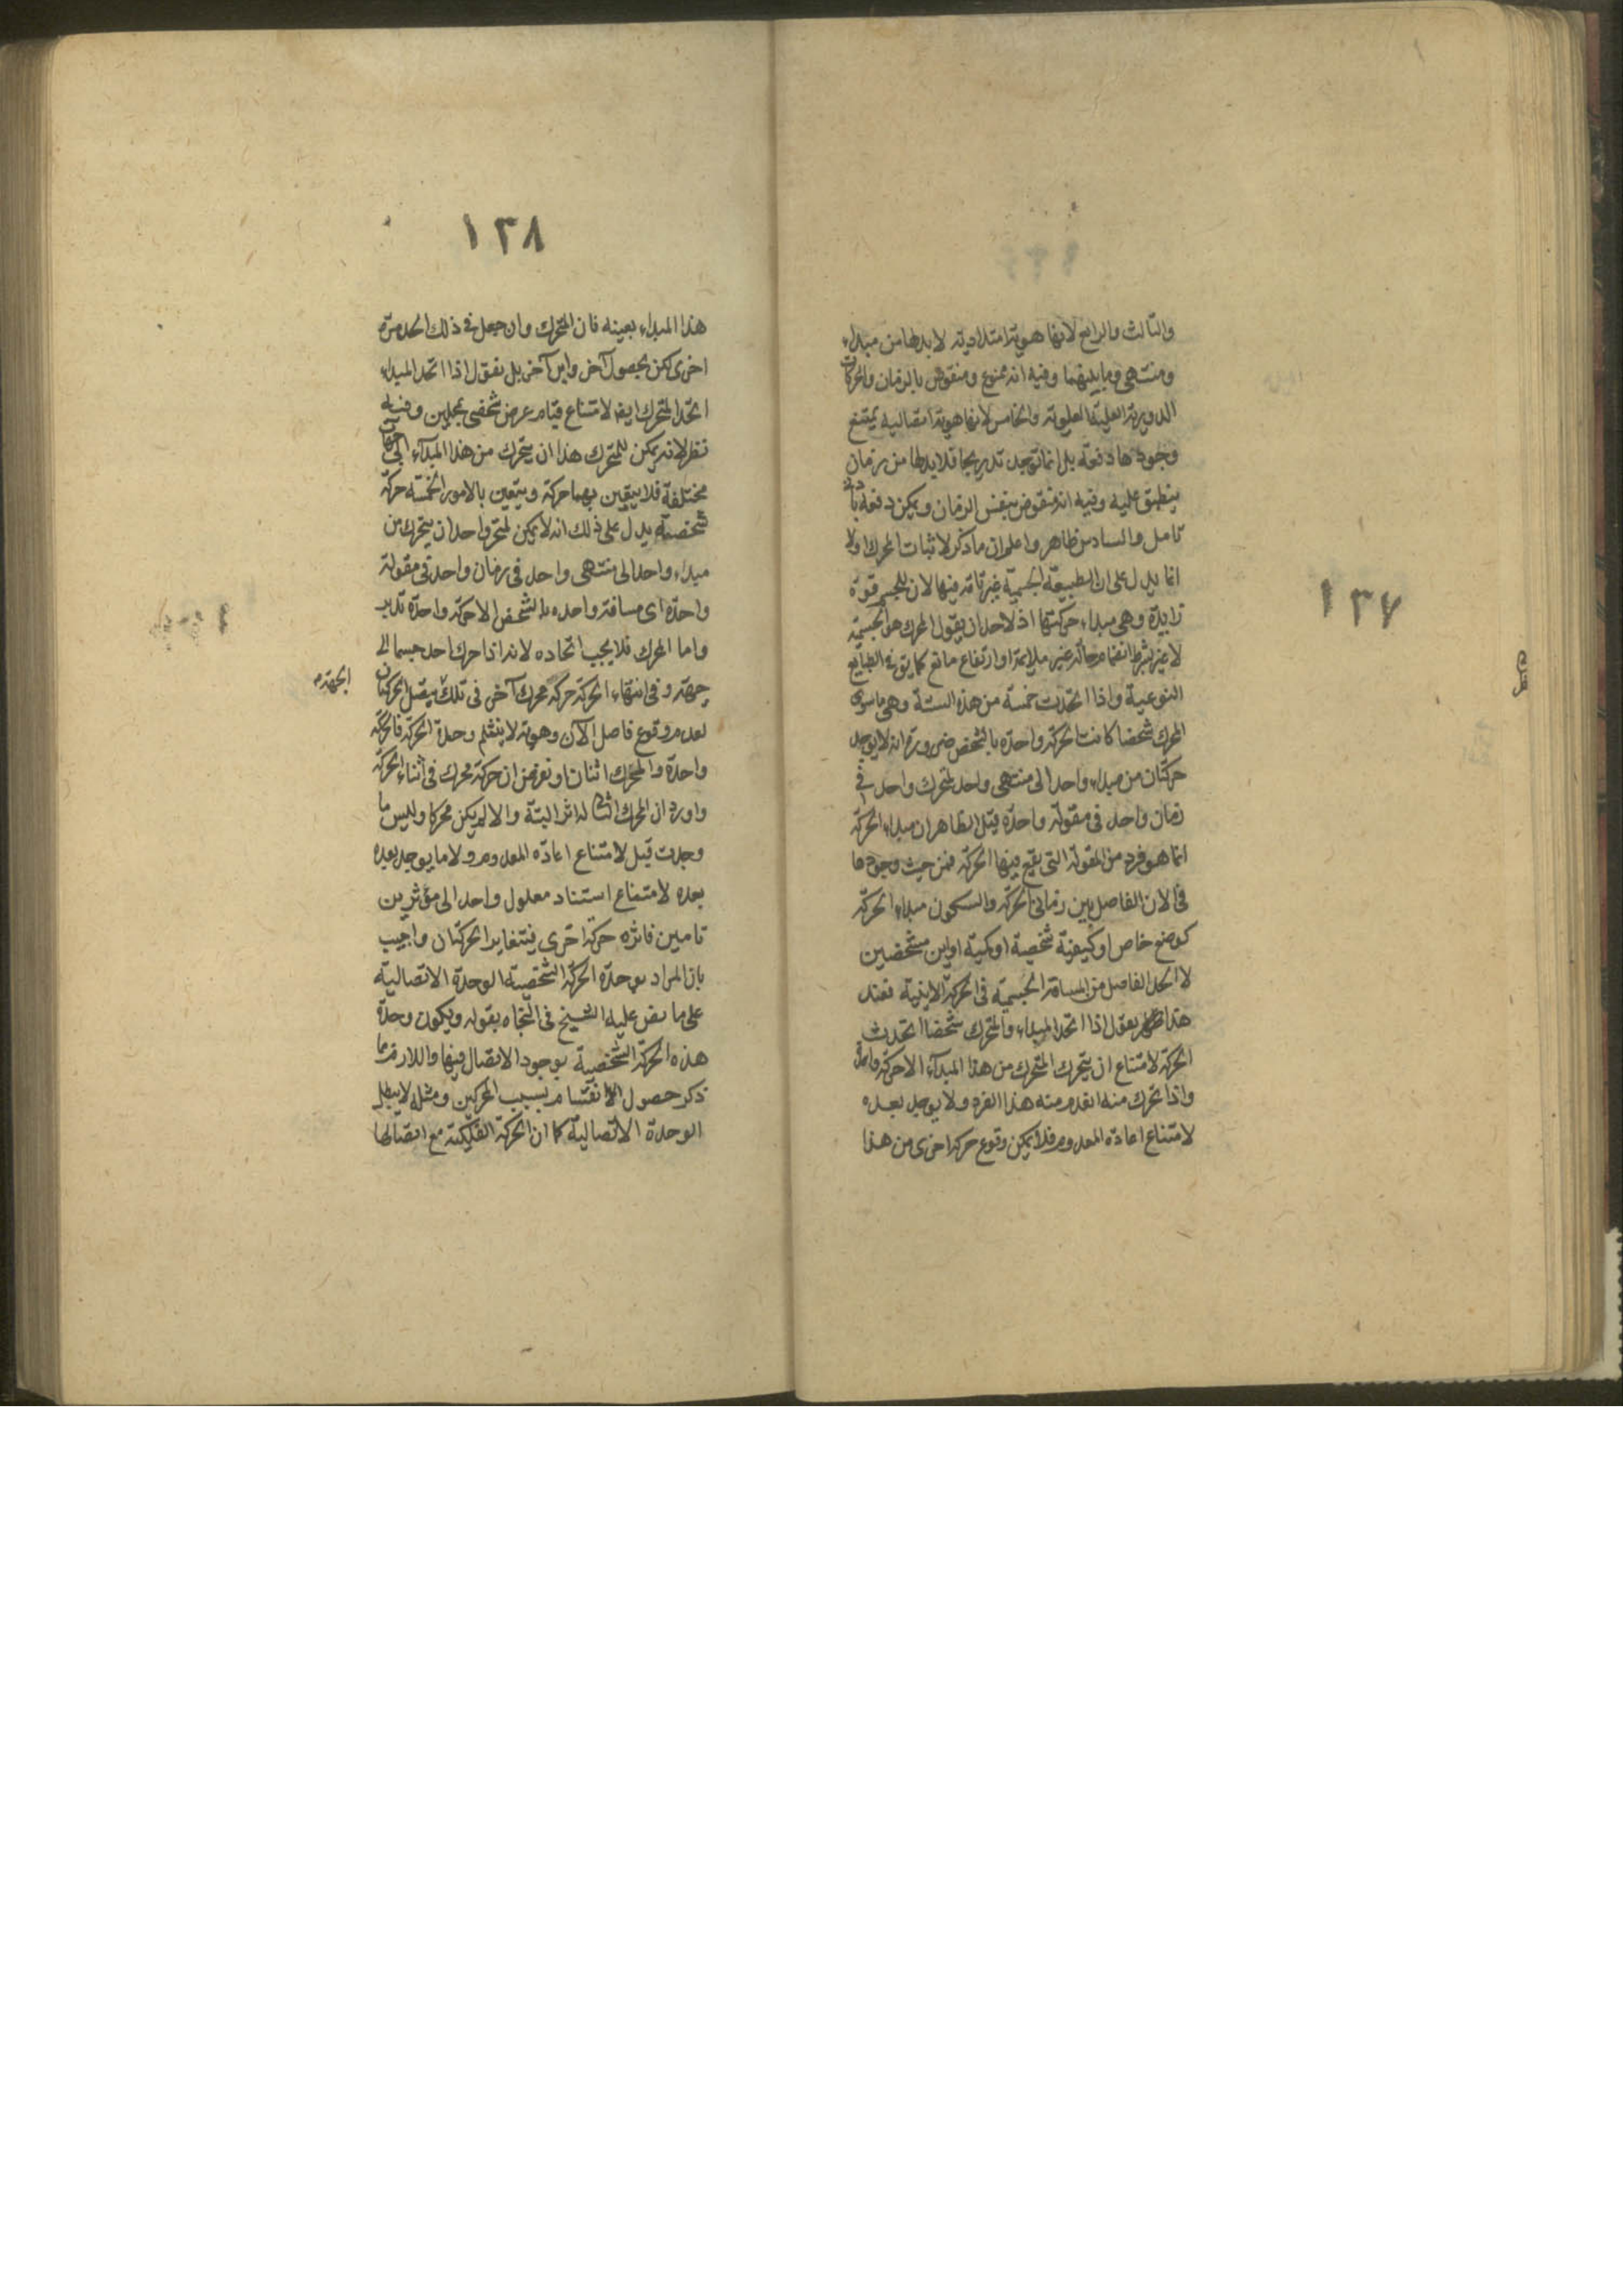 ١٣٧
والثالث والرابع لانها هوية امتدادية لا بد لها من مبداء
ومنتهى وما بينهما وفيه انه ممنوع ومنقوض بالزمان والحركات
الدورية العلوية والخامس لانها هوية اتصالية يمتنع
وجودها دفعة بل انما توجد تدريجا فلا بد لها من زمان
ينطبق عليه وفيه انه منقوض بنفس الزمان ويمكن دفعه
تامل والسادس ظاهر واعلم ان ما ذكر لاثبات المحرك اولا
انما يدل على ان الطبيعة الجسمية غير تامة فيها لان للجسم قوة
زايدة وهى مبداء حركتها اذ لاحد ان يقول المحرك هو الجسمية
لا غير بشرط انضمام حالة غير ملايمة او ارتفاع مانع كما يق فى الطبايع
النوعية واذا اتحدت خمسة من هذه الستة وهى ما سوى
المحرك شخصا كانت الحركة واحدة بالشخص ضرورة انه لا يوجد
حركتان من مبداء واحد الى منتهى واحد لمتحرك واحد فى
زمان واحد فى مقولة واحدة قيل الظاهر ان مبداء الحركة
انما هو فرد من المقولة التى يقع فيها الحركة فمن حيث وجودها
فى الان الفاصل بين زمانى الحركة والسكون مبداء الحركة
كوضع خاص او كيفية شخصية او كمية او اين مشخصين
لا الحد الفاصل من المسافة الجسمية فى الحركة الاينية فعند
هذا نقول اذا اتحد المبداء والمتحرك شخصا اتحدت
الحركة لامتناع ان يتحرك المتحرك من هذا المبدآء الا حركة واحدة
واذا تحرك منه انعدم منه هذا الفرد ولا يوجد بعده
لامتناع اعادة المعدوم فلا يمكن وقوع حركة اخرى من هذا
١٣٨
هذا المبداء بعينه فان المتحرك وان جعل فى ذلك الحد مرة
اخرى لكن بحصول آخر واين آخر بل نقول اذا اتحد المبداء
اتحد المتحرك ايضا لامتناع قيام عرض شخصى بمحلين وفيه
نظر لانه يمكن للمتحرك هذا ان يتحرك من هذا المبدآء الى جهات
مختلفة فلا يتعين بهما حركة ويتعين بالامور الخمسة حركة
شخصية يدل على ذلك انه لا يمكن لمتحرك واحد ان يتحرك من
مبداء واحد الى منتهى واحد فى زمان واحد فى مقولة
واحدة اى مسافة واحدة بالشخص الا حركة واحدة تدبر
واما المحرك فلا يجب اتحاده لانه اذا حرك احد جسما الى
جهة وفى انتهاء الحركة حركه محرك آخر فى تلك يتصل الحركتان
الجهة م
لعدم وقوع فاصل الآن وهو به لا ينثلم وحدة الحركة فالحركة
واحدة والمحرك اثنان او نفرض ان حركه محرك فى اثناء الحركة
واورد ان المحرك الثانى له اثر البتة والا لم يكن محركا وليس ما
وجدت قبل لامتناع اعادة المعدوم ولا ما يوجد بعده
بعده لامتناع استناد معلول واحد الى مؤثرين
تامين فاثره حركة اخرى فيتغاير الحركتان واجيب
بان المراد بوحدة الحركة الشخصية الوحدة الاتصالية
على ما نص عليه الشيخ فى النجاة بقوله ويكون وحدة
هذه الحركة الشخصية بوجود الاتصال فيها واللازم مما
ذكر حصول الانقسام بسبب المحركين ومثله لا يبطل
الوحدة الاتصالية كما ان الحركة الفلكية مع اتصالها